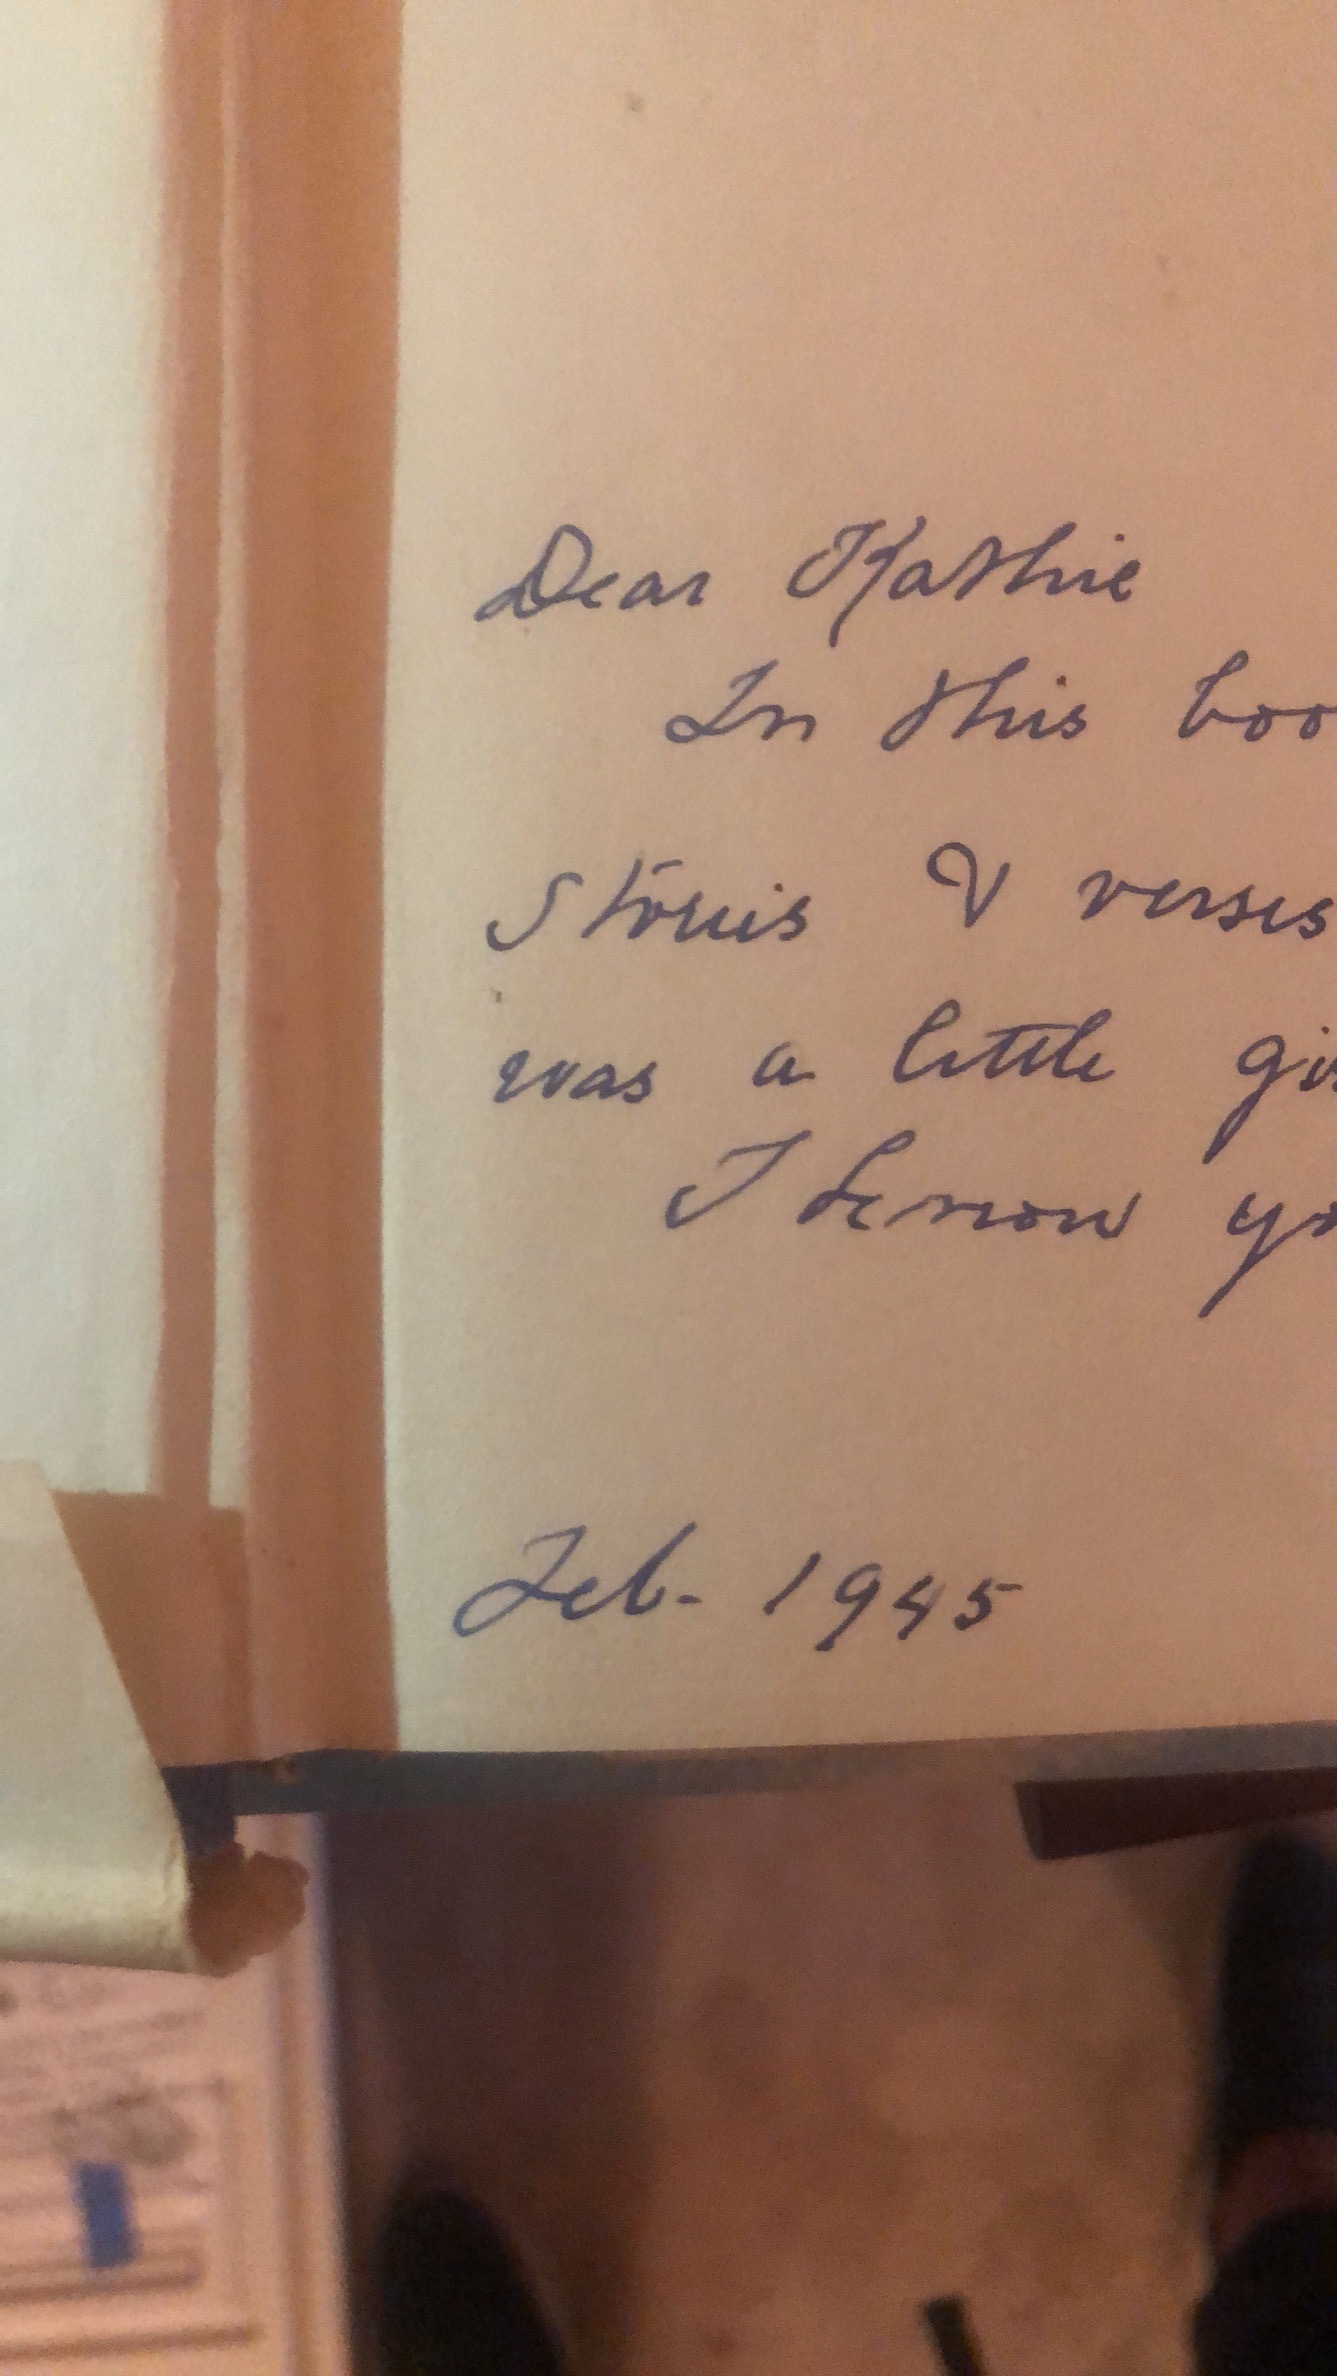 Dear Kathie
In this boo
Stories & verses
was a little gi
I know yo
Feb. 1945